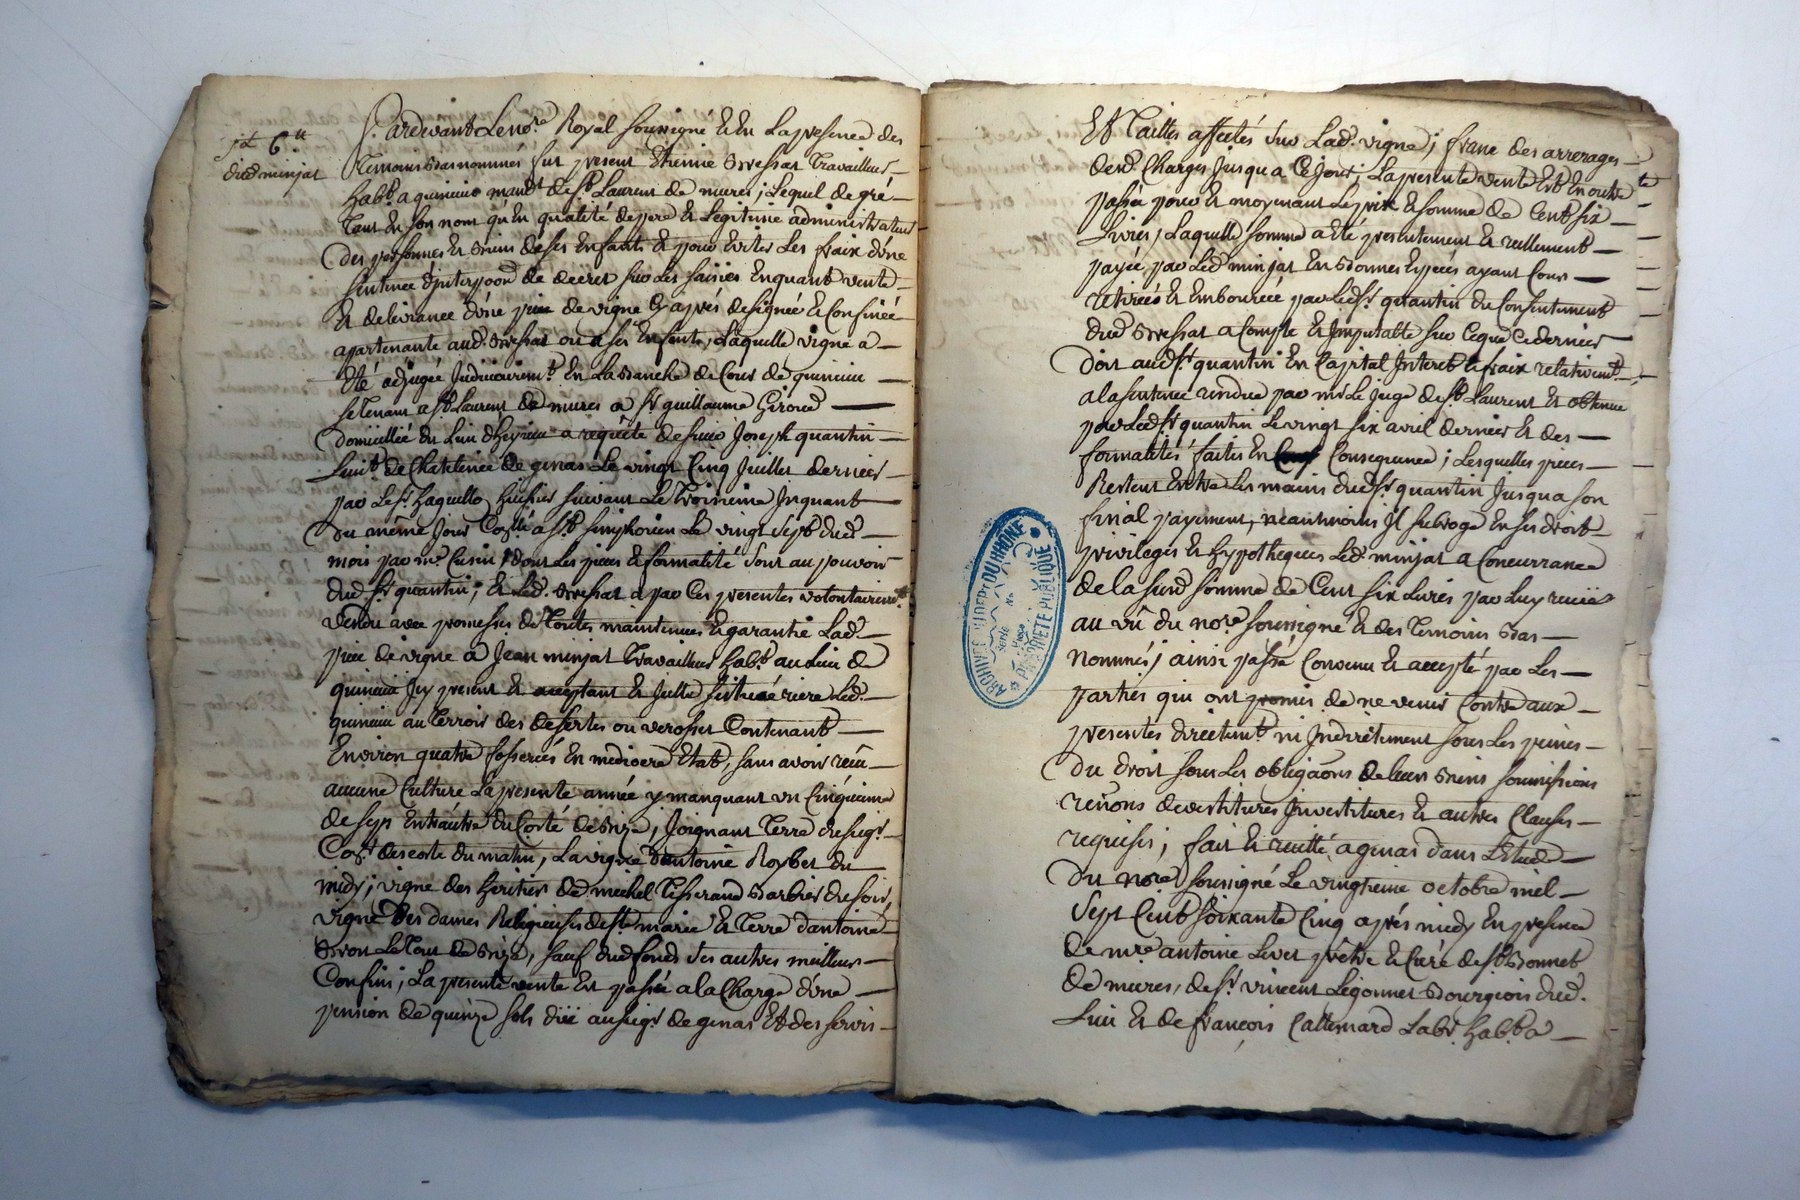 Pardevant Le no.re Royal soussigné & En La presence des
temoins bas nommés fut present Etienne Bressat Travailleur
hab.t a quincieu mand.t de s.t Laurent de mures; Lequel de gré
Tant En son nom qu'En qualité de pere & Legitime administrateur
Des personnes & Biens de ses Enfants & pour Eviter Les fraix d'une
sentence d'interpoon de decret sur Les saisies Enquant vente
Et delivrance d'une piece de vigne Cy aprés designée & Confinée
apartenante aud. Bressat ou a ses Enfants, Laquelle vigne a
Eté adjugée Judiciairem.t En La Banche de Cour de quincieu
se Tenant a s.t Laurent de mures a s.r guillaume Giroud
domicillié du Lieu d'heyrieu a requête de sieur Joseph quantin
Lieut.t de Chatelenie de genas Le vingt Cinq Juillet dernier
par Le s.r huissier suivant Le Troisieme Inquant
du meme Jour Con.llé a s.t simphorien Le vingt sept dud.
mois par m.r Cusin, dont Les pieces & formalité sont au pouvoir
dud. s.r quantin; & Led. Bressat a par Ces presentes volontairem.t
vendu avec promesses de Toutes maintenues & garantie Lad.
piece de vigne a Jean minjat Travailleur hab.t au Lieu de
quincieu Icy present & acceptant & Icelle scituée riere Led.
quincieu au Terroir des desertes ou verosses Contenant
Environ quatre fosserées En mediocre Etat, sans avoir reçu
aucune Culture La presente année y manquant un Cinquieme
de seps Entr'autre du Côté de Bize, Joignant Terre du seig.r
Con.t des cote du matin, La vigne d'antoine Roybet du
midy; vigne des heritiers de michel Tisserand Barbier du soir,
vigne des dames Religieuses de s.te marie & Terre d'antoine
Bron Le Tout de Bize, sauf dud. fonds ses autres meilleurs
Confins; La presente vente Est passée a la Charge d'une
pension de quinze sols due au seig.r de genas Et des servis
6.ll
dud. minjat
Et Tailles affectés sur Lad. vigne; franc des arrerages
desd. Charges Jusqu a Ce Jour; La presente vente Est En outre
passée pour & moyenant Le prix & somme de Cent six
Livres, Laquelle somme a Eté presentement & reellement
payée par Led. minjat En Bonnes Especes ayant Cour
retirée & Emboursée par Led. s.r quantin du Consentement
dud. Bressat a Compte & Imputable sur Ceque Ce dernier
doit aud. s.r quantin En Capital Interet & fraix relativem.t
a la sentence rendue par m.r Le Juge de s.t Laurent & obtenue
par Led. s.r quantin Le vingt six avril dernier & des
formalités faites En Consequence; Lesquelles pieces
Restent Entre Les mains dud. s.r quantin Jusqu a son
final payement, neantmoins Il subroge En ses droits
privileges & hypotheques Led. minjat a Concurrance
de la susd. somme de Cent six Livres par Luy reçüe
au vû du no.re soussigné & des Temoins Bas
nommés; ainsi passé Convenu & accepté par Les
parties qui ont promis de ne venir Contre aux
presentes directem.t ni Indirectement sous Les peines
Du droit sous Les obligaons de Leurs Biens soumissions
renons devestitures Investitures & autres Clauses
requises; fait & recitté a genas dans L'Etude
Du no.re soussigné Le vingtieme octobre mil
sept Cent soixante Cinq aprés midy En presence
de m.re antoine Levet prêtre & Curé de s.t Bonnet
de mures, de s.r vincent Legonnet Bourgeois dud.
Lieu & de françois Callemard Lab.r hab.t a
ARCHIVES DU DEP.T DU RHONE
Série No
Page
PROPRIÉTÉ PUBLIQUE